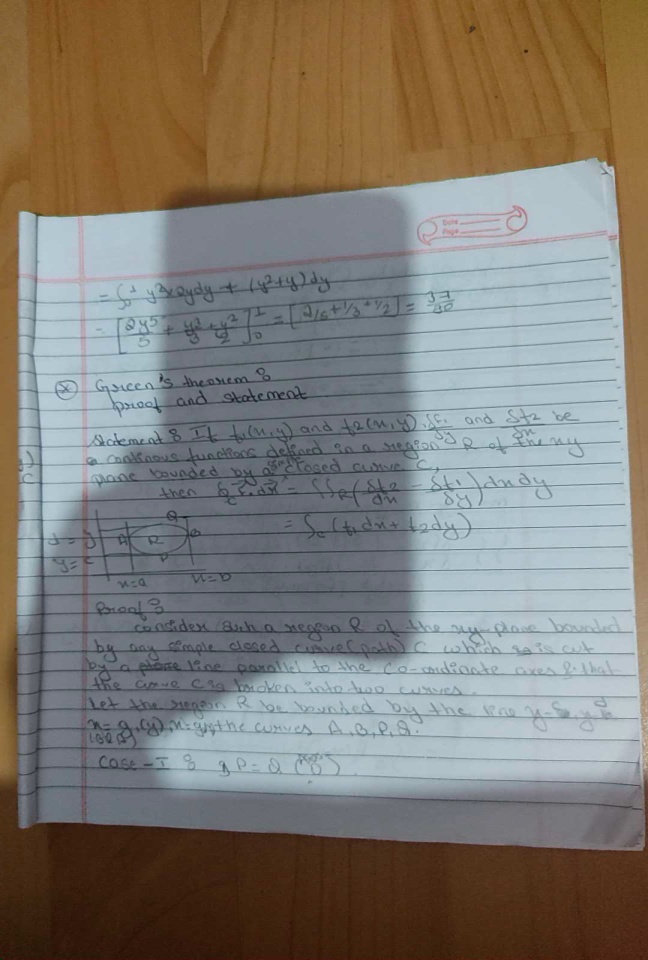 Date
Page
= ∫₀¹ y²×2ydy + (y²+y)dy
= [2y⁵/5 + y³/3 + y²/2]₀¹ = [2/5+1/3+1/2] = 37/30
Green's theorem :
proof and statement
Statement : If f1(x,y) and f2(x,y), δf1/δy and δf2/δx be
a continous functions defined in a region R of the xy
plane bounded by a simple closed curve C,
then ∮c = ∬R(δf2/δx - δf1/δy)dxdy
= ∫c (f1dx + f2dy)
y=
y=c
A R B
Q
P
x=a x=b
Proof :
consider such a region R of the xy-plane bounded
by any simple closed curve (path) C which is cut
by a line parallel to the co-ordinate axes & that
the curve C is broken into two curves.
Let the region R be bounded by the line
the curves A,B,P,Q.
Case-I :